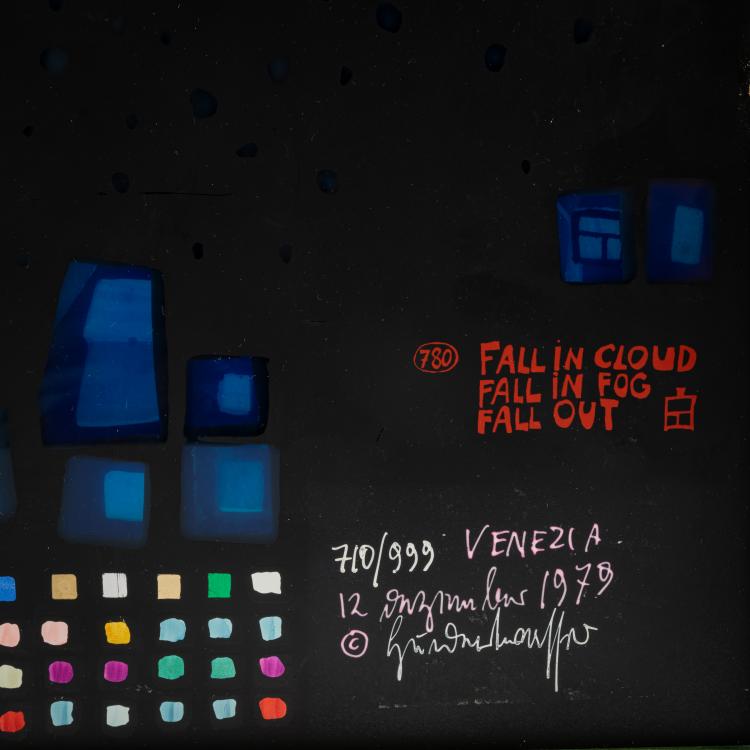 780 FALL IN CLOUD
FALL IN FOG
FALL OUT
710/999 VENEZIA
12 dezember 1979
© Hundertwasser